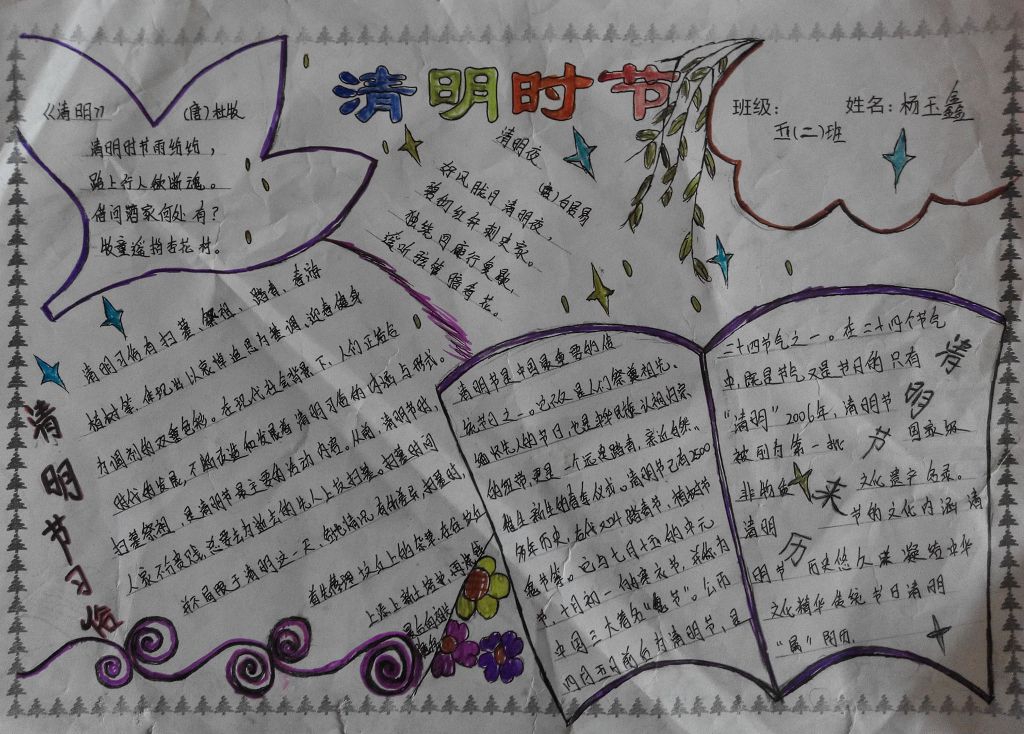 清明时节
班级:
五(二)班
姓名:杨玉鑫
《清明》
(唐)杜牧
清明时节雨纷纷,
路上行人欲断魂。
借问酒家何处有?
牧童遥指杏花村。
清明夜
(唐)白居易
好风胧月清明夜,
碧砌红轩刺史家。
独绕回廊行复歇,
遥听弦管暗看花。
清明节习俗
清明习俗有扫墓、祭祖、踏青、春游
植树等,体现出以哀悼追思为基调,迎春健身
为调剂的双重色彩。在现代社会背景下,人们正结合
时代的发展,不断改造和发展着清明习俗的内涵与形式。
扫墓祭祖,是清明节最主要的活动内容。从前,清明节时,
人家不分贵贱,总要去为逝去的先人上坟扫墓。扫墓时间
并不局限于清明这一天,
首先修理坟台上的
上添上新土培电,再
最后
清明节是中国最重要的传
统节日之一。它不仅是人们祭奠祖先、
缅怀先人的节日,也是中华民族认祖归宗
的纽带,更是一个远足踏青、亲近自然、
催生新生的春季仪式。清明节已有2500
多年历史,古代又叫踏青节、植树节
鬼节等。它与七月十五的中元
节,十月初一的寒衣节,并称为
中国三大著名“鬼节”。公历
四月五日前后为清明节,是
清明节来历
二十四节气之一。在二十四个节气
中,既是节气又是节日的只有
“清明”2006年,清明节
被列为第一批国家级
非物质文化遗产名录。
清明节的文化内涵清
明节历史悠久来凝结中华
文化精华传统节日清明
“属”阴历.